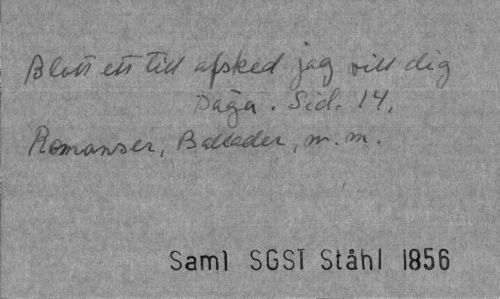 Blott ett till afsked jag vill dig
Säga. Sid. 14.
Romanser, Ballader, m.m.
Saml SGST Ståhl 1856